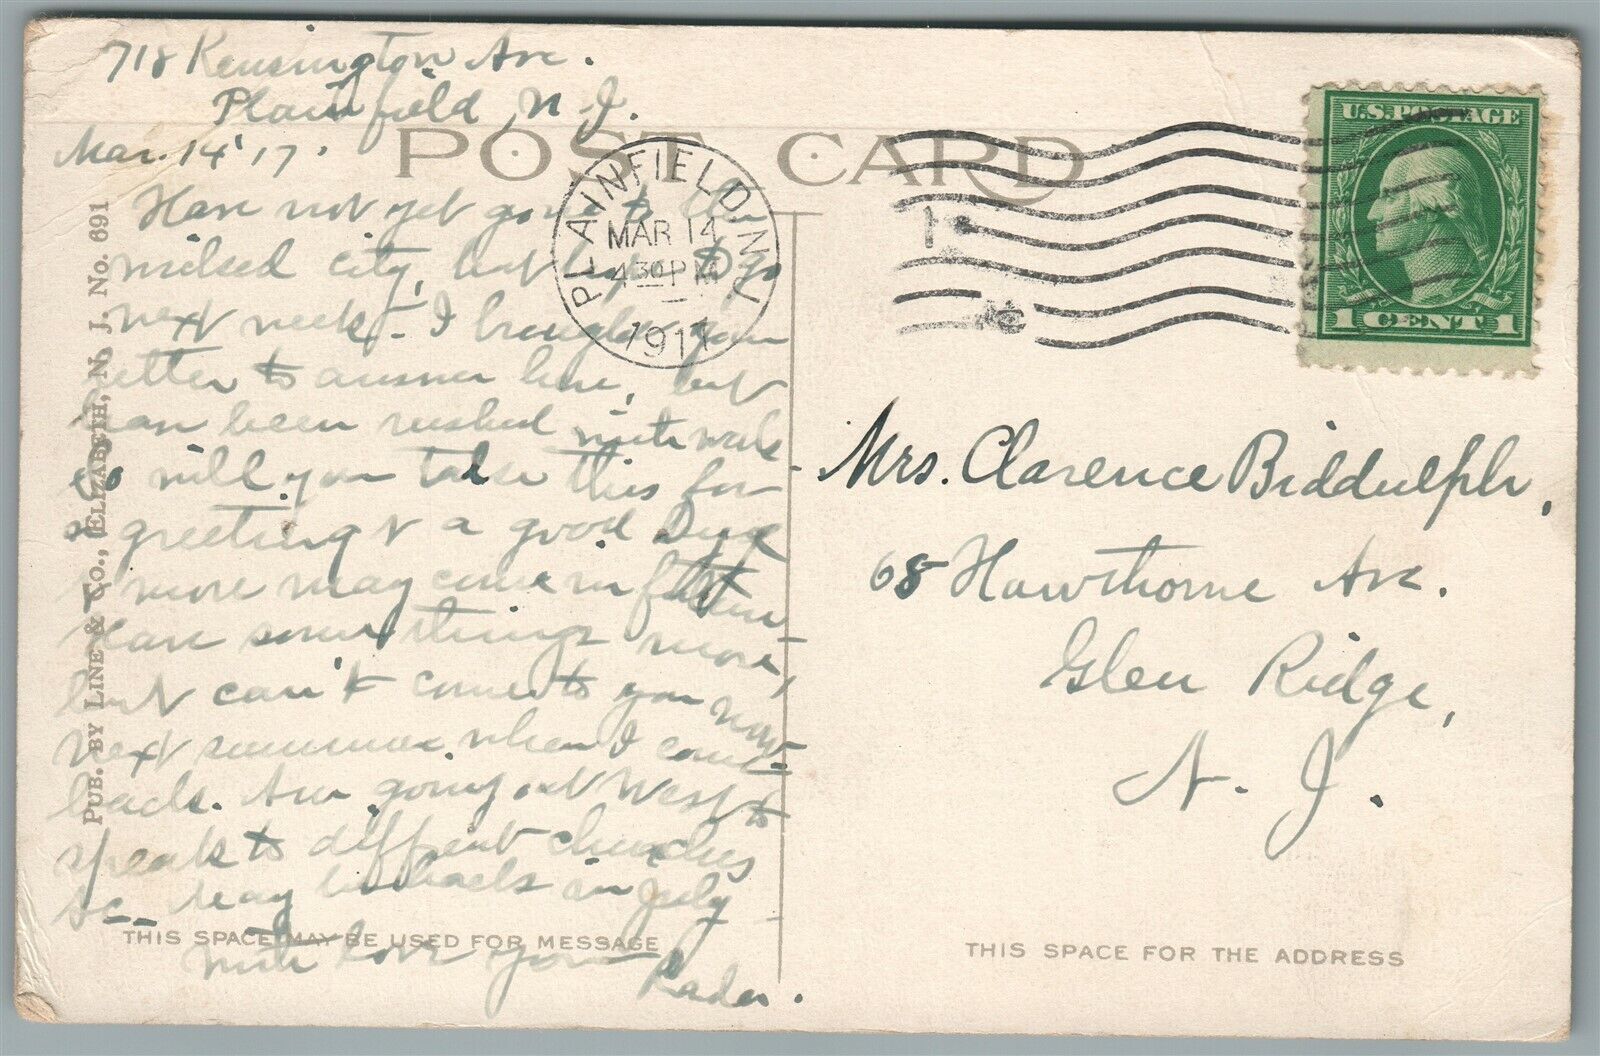 718 Kensington Ave.
Plainfield, N. J.
Mar. 14 '17.
POST CARD
PLAINFIELD N.J.
MAR 14
4 30 PM
1917
U.S. POSTAGE
1 CENT 1
Have not yet gone to the
city, but hope to go
next week. I brought your
letter to answer here, but
have been rushed with work
so will you take this for
a greeting & a good Bye
& more may come in
some things more,
but can't come to you now
next summer when I come
back. Am going out West to
speak to different churches
&c. May be back in July
With love your
Rader.
Mrs. Clarence Biddulph,
68 Hawthorne Ave.
Glen Ridge,
N. J.
PUB. BY LINE & CO., ELIZABETH, N. J. No. 691
THIS SPACE MAY BE USED FOR MESSAGE
THIS SPACE FOR THE ADDRESS